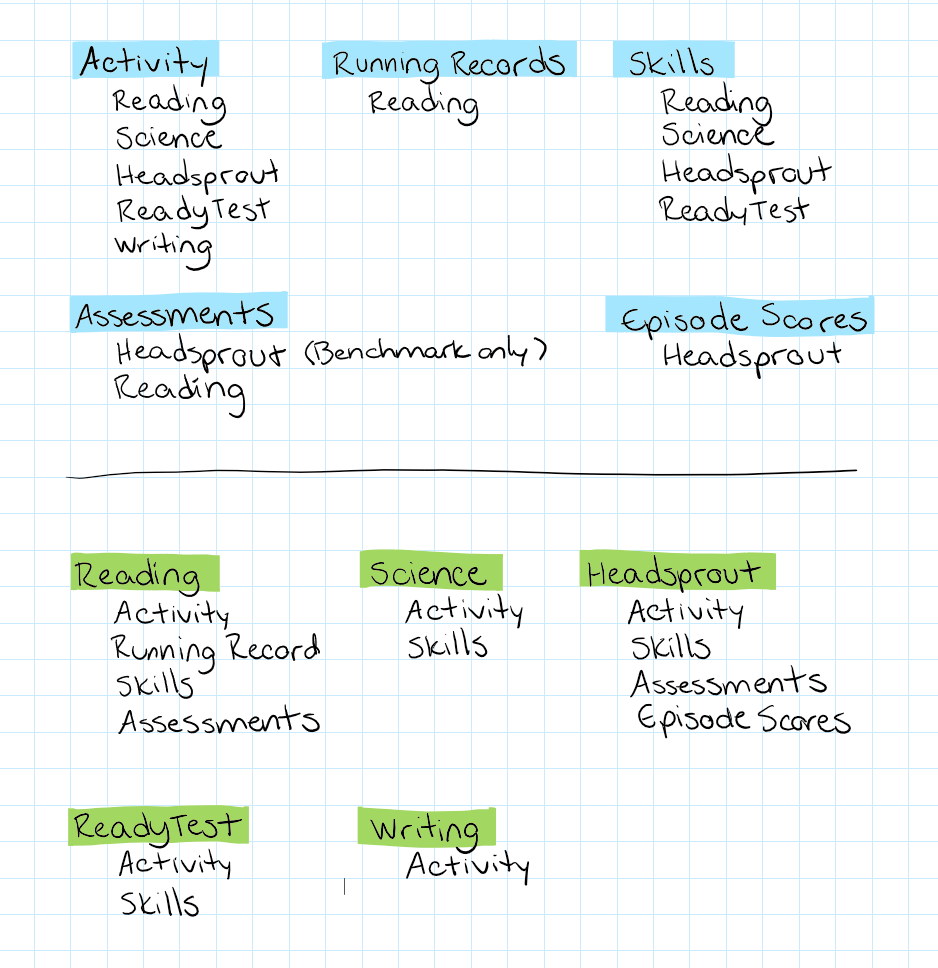 Activity
Reading
Science
Headsprout
ReadyTest
Writing
Running Records
Reading
Skills
Reading
Science
Headsprout
ReadyTest
Assessments
Headsprout (Benchmark only)
Reading
Episode Scores
Headsprout
Reading
Activity
Running Record
Skills
Assessments
Science
Activity
Skills
Headsprout
Activity
Skills
Assessments
Episode Scores
ReadyTest
Activity
Skills
Writing
Activity